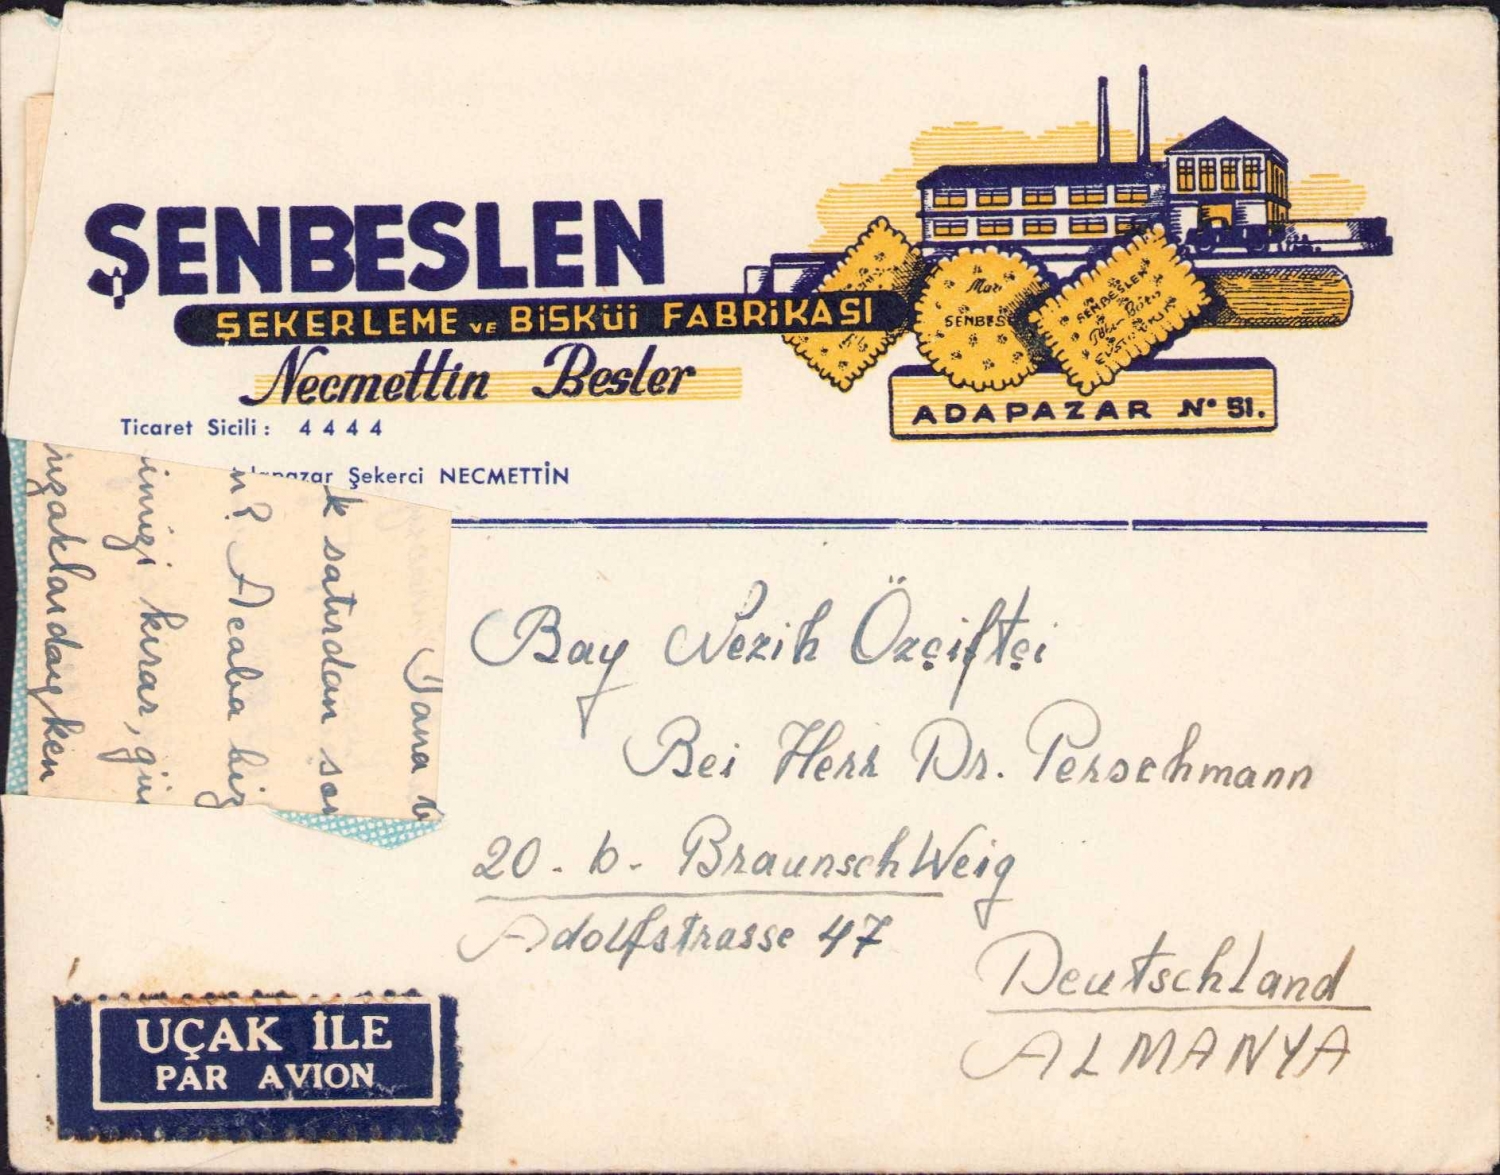 ŞENBESLEN
ŞEKERLEME VE BİSKÜİ FABRİKASI
Necmettin Besler
ADAPAZAR Nº 51.
Ticaret Sicili: 4444
Adapazar Şekerci NECMETTİN
SENBES
SENBESLEN
k satırdan son
n? Acaba biz
imizi kırar, gün
uzaklardayken
Bay Nezih Özçiftçi
Bei Herr Dr. Perschmann
20-b- Braunschweig
Adolfstrasse 47
Deutschland
ALMANYA
UÇAK İLE
PAR AVION